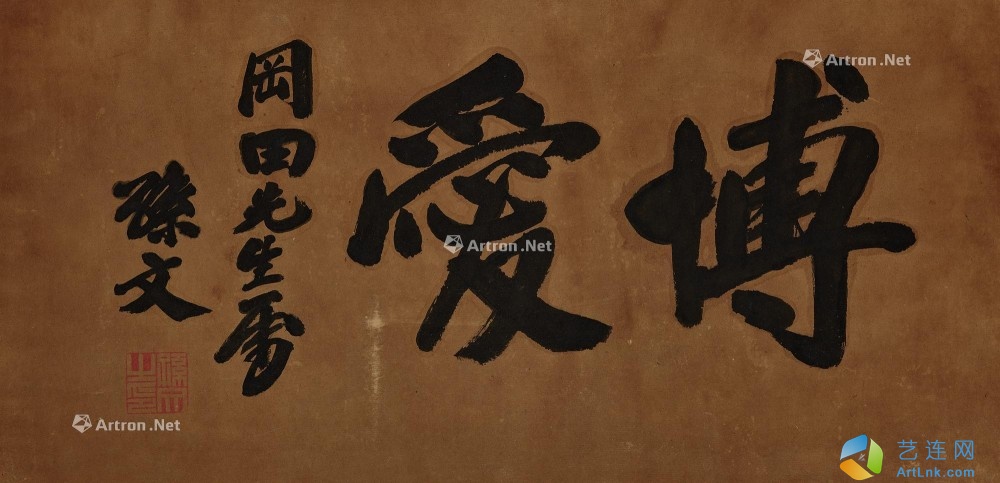 博愛
岡田先生屬
孫文
孫文之印
Artron.Net
Artron.Net
Artron.Net
艺连网
ArtLnk.com